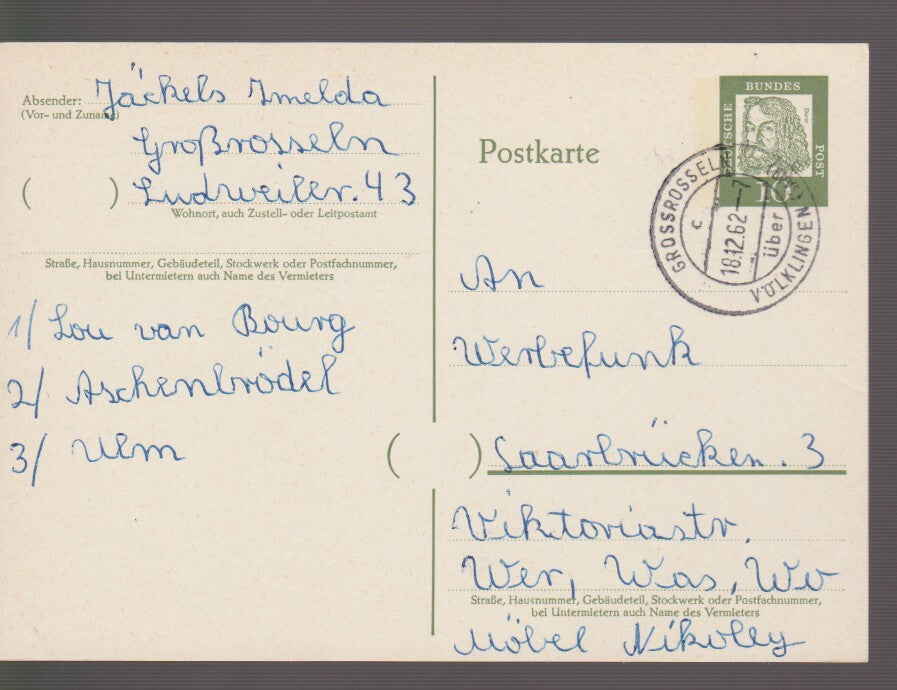 Absender: Jäckels Imelda
(Vor- und Zuname)
Großrosseln
( ) Ludweiler. 43
Wohnort, auch Zustell- oder Leitpostamt
Straße, Hausnummer, Gebäudeteil, Stockwerk oder Postfachnummer,
bei Untermietern auch Name des Vermieters
1/ Lou van Bourg
2/ Aschenbrödel
3/ Ulm
Postkarte
DEUTSCHE BUNDES POST
Dürer
10
GROSSROSSELN
c
18.12.62-7
über
VÖLKLINGEN
An
Werbefunk
( ) Saarbrücken. 3
Viktoriastr.
Wer, Was, Wo
Straße, Hausnummer, Gebäudeteil, Stockwerk oder Postfachnummer,
bei Untermietern auch Name des Vermieters
Möbel Nikolley